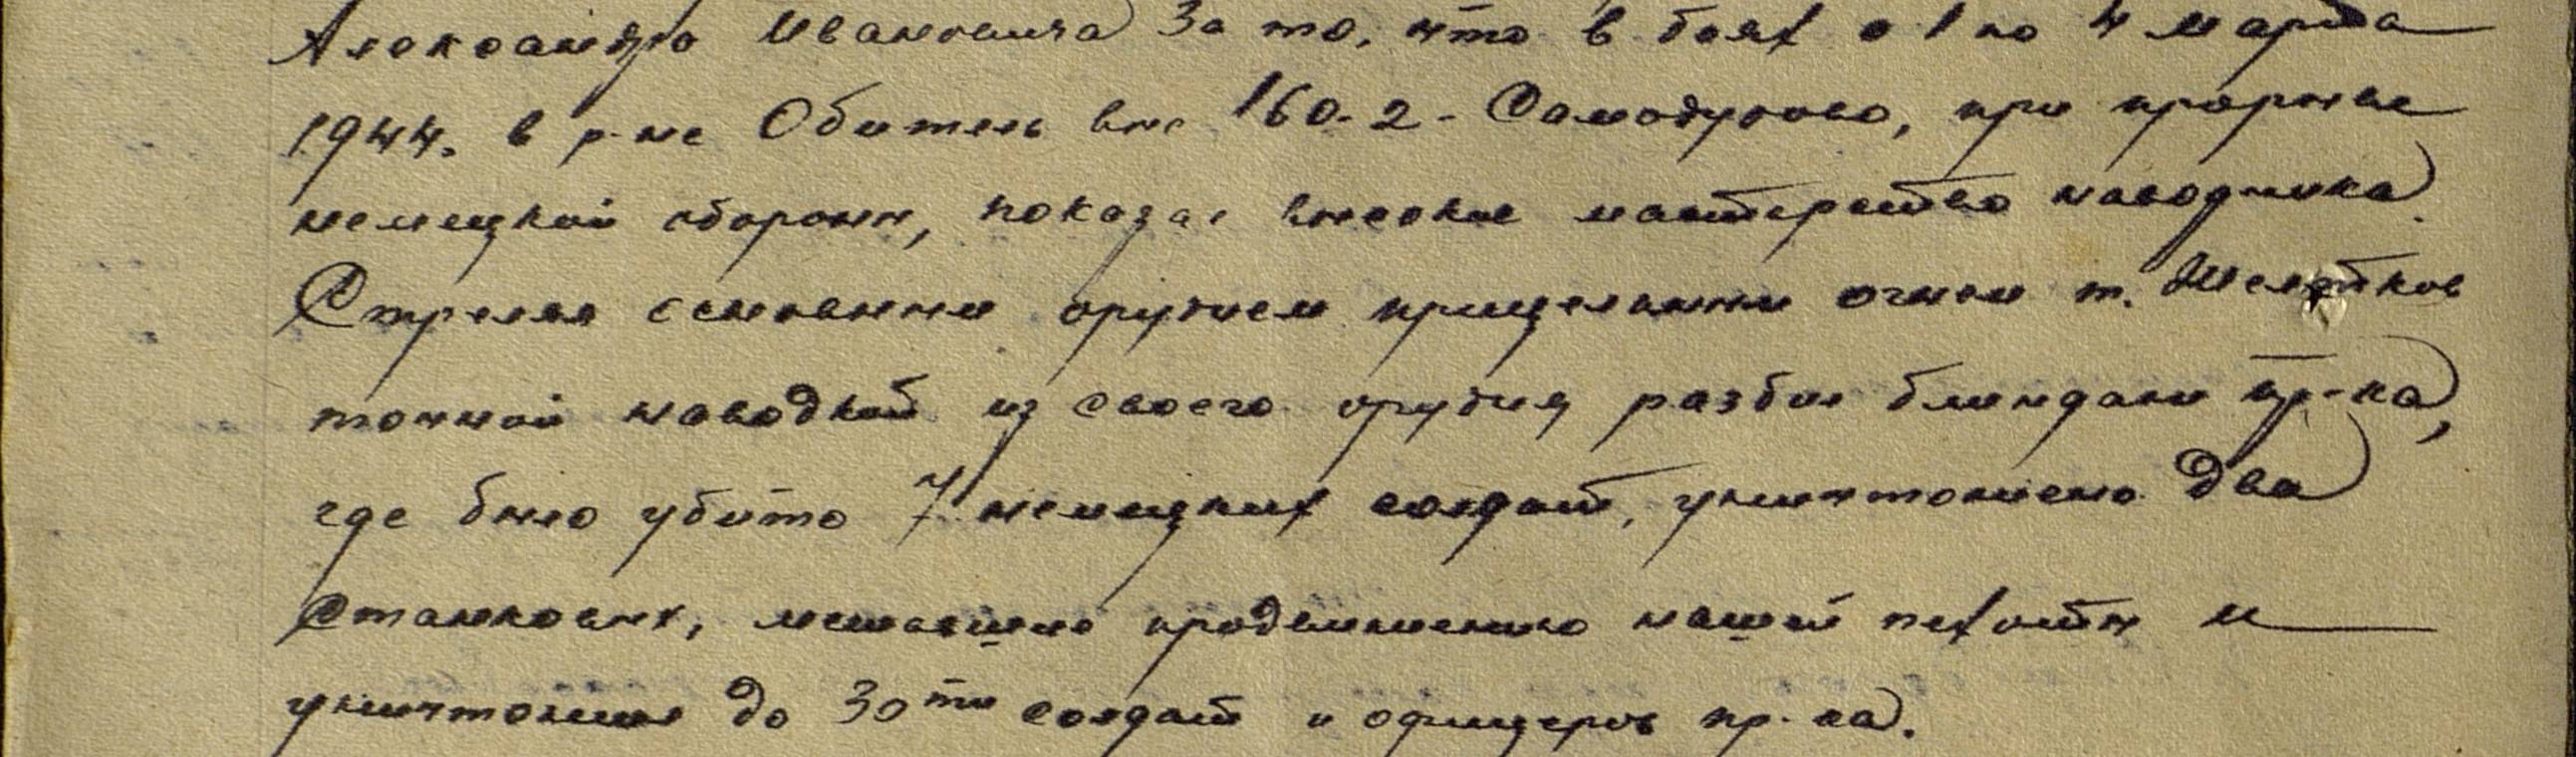 Александра Ивановича За то, что в боях с 1 по 4 марта
1944. в р-не Обитель выс 160.2 - Самодурово, при прорыве
немецкой обороны, показал высокое мастерство наводчика.
Стреляя основным орудием прицельным огнем т.
точной наводкой из своего орудия разбил блиндаж пр-ка,
где было убито 7 немецких солдат, уничтожено два
Станковых, мешавших продвижению нашей пехоты и
уничтожил до 30ти солдат и офицеров пр-ка.